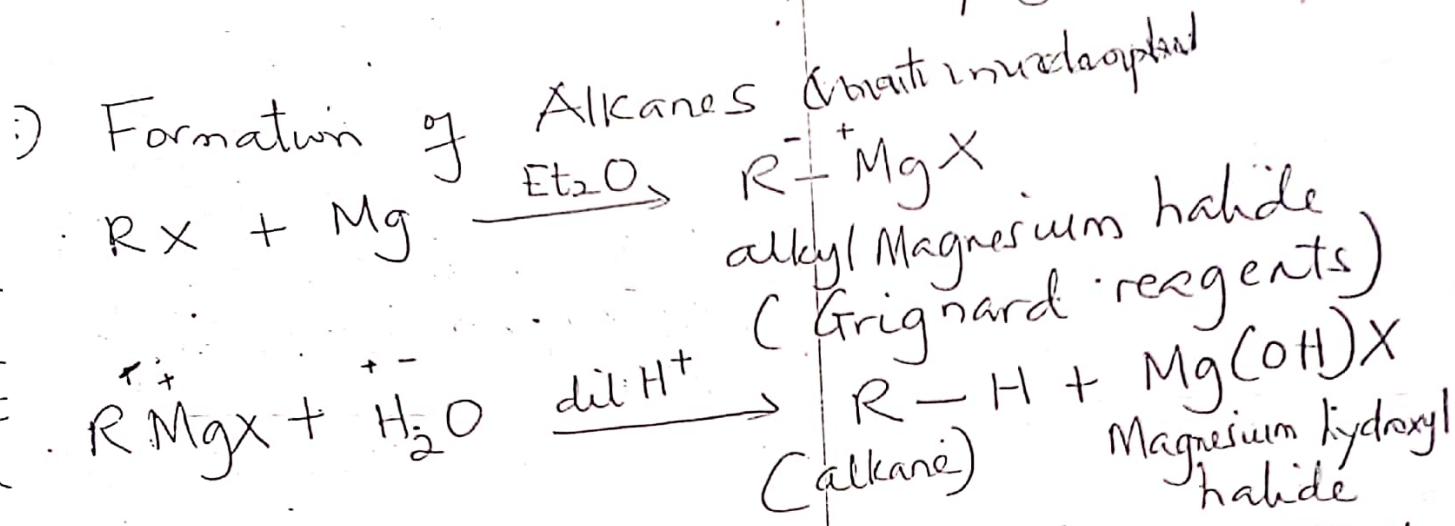 :) Formation of Alkanes
RX + Mg Et₂O→ R⁻–⁺MgX
alkyl Magnesium halide
(Grignard reagents)
RMgX + H₂O dil: H⁺→ R–H + Mg(OH)X
(alkane) Magnesium hydroxyl
halide